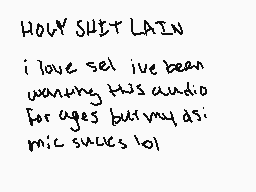 HOLY SHIT LAIN
i love sel ive been
wanting this audio
for ages but my dsi
mic sucks lol